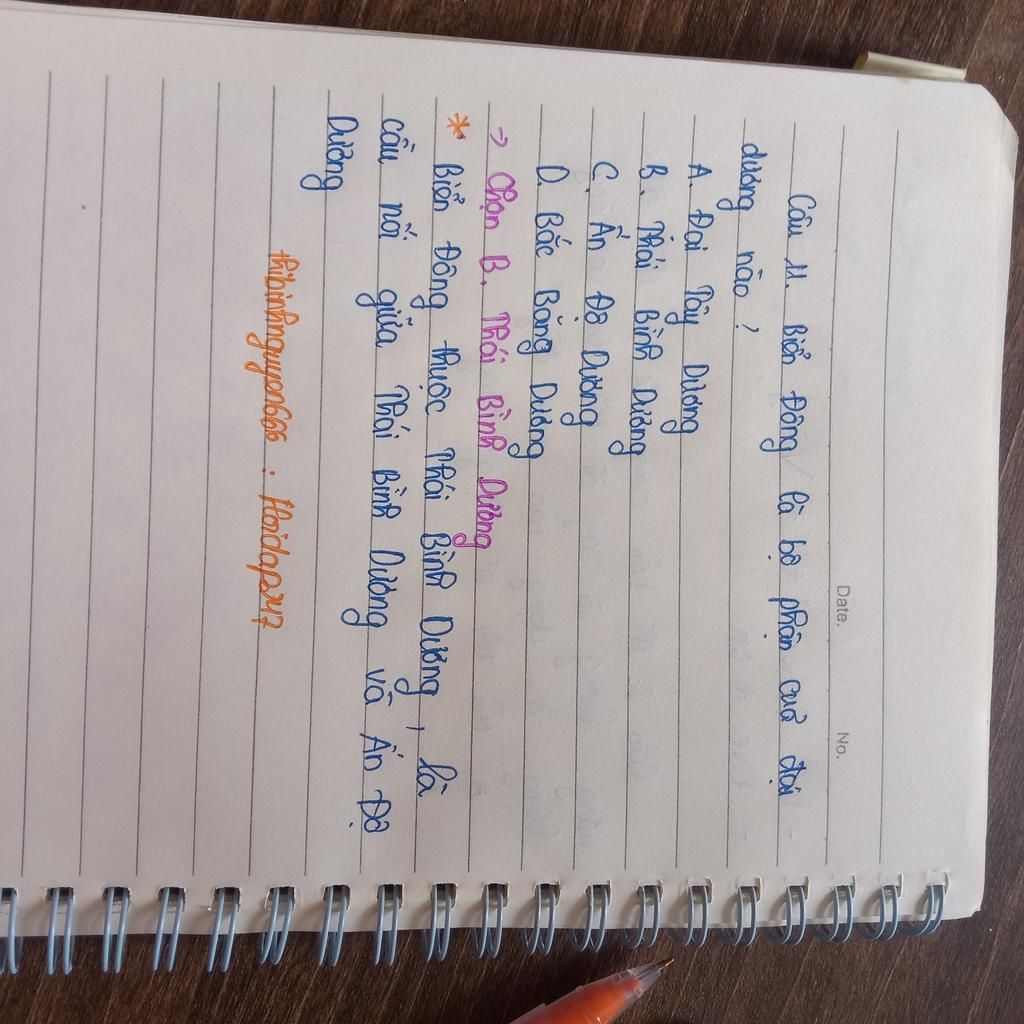 Date. No.
Câu 11. Biển Đông là bộ phận của đại
dương nào?
A. Đại Tây Dương
B. Thái Bình Dương
C. Ấn Độ Dương
D. Bắc Băng Dương
→ Chọn B. Thái Bình Dương
* Biển Đông thuộc Thái Bình Dương, là
cầu nối giữa Thái Bình Dương và Ấn Độ
Dương
thibinhnguyen666 : Hoidap247